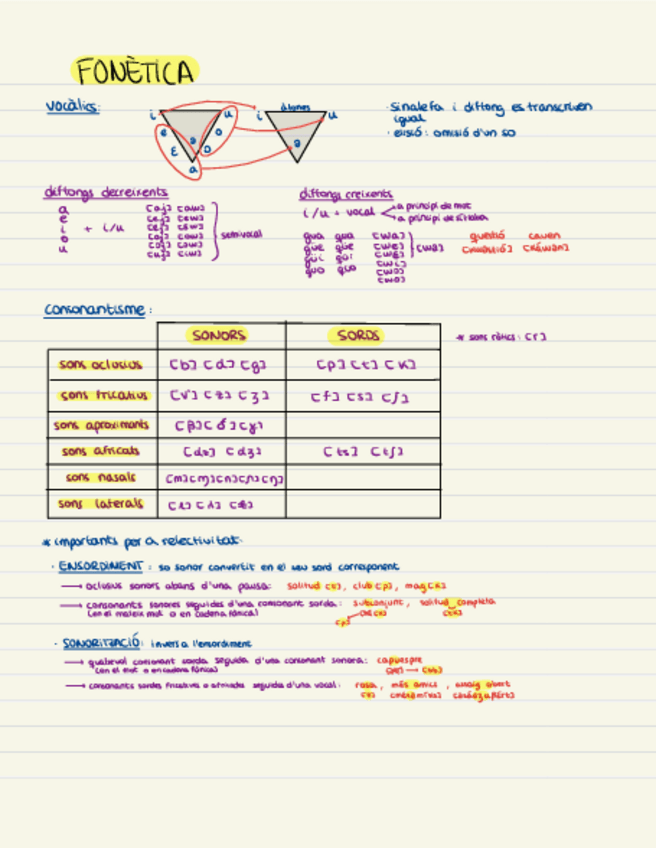 FONÈTICA
vocàlics:
i u i àtones u
e o
ɛ ə ɔ ə
a
· Sinalefa i diftong es transcriuen
igual
· elisió: omisió d'un so
diftongs decreixents
a [aj] [aw]
e
i + i/u semivocal
o
u
diftongs creixents
i/u + vocal a principi de mot
a principi de síl·laba
gua qua [wa]
güe qüe [we]
güi qüi [wi]
guo quo [wo]
qüestió cauen
Consonantisme:
SONORS SORDS * sons ròtics: [r]
sons oclusius [b] [d] [g] [p] [t] [k]
sons fricatius [v] [z] [ʒ] [f] [s] [ʃ]
sons aproximants [β] [ð] [ɣ]
sons africats [dz] [dʒ] [ts] [tʃ]
sons nasals [m] [ɱ] [n] [ɲ] [ŋ]
sons laterals [l] [ʎ]
* importants per a selectivitat:
· ENSORDIMENT: so sonor convertit en el seu sord corresponent
→ oclusius sonors abans d'una pausa: solitud [t], club [p], mag [k]
→ consonants sonores seguides d'una consonant sorda: subconjunt, solitud completa
(en el mateix mot o en cadena fònica) [p]
· SONORITZACIÓ: invers a l'ensordiment
→ qualsevol consonant sorda seguida d'una consonant sonora: capvespre
(en el mot o en cadena fònica)
→ consonants sordes fricatives o africada seguida d'una vocal: rosa, més amics, assaig obert
[z]